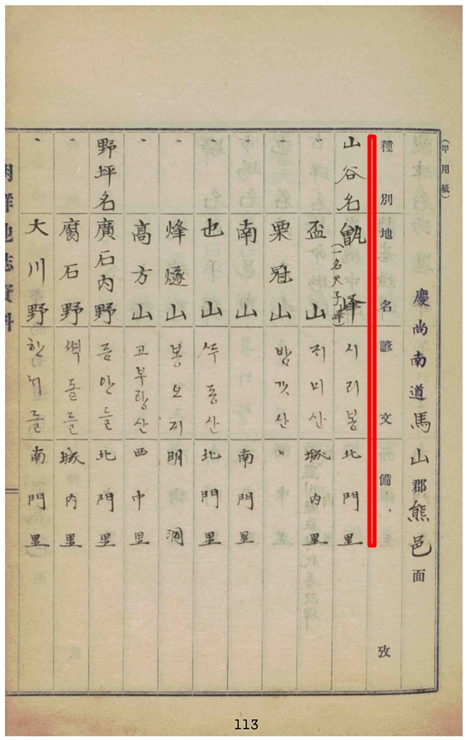 (甲用紙)
慶尚南道馬山郡熊邑面
種別 地名 諺文 備攷
山谷名 甑峰(一名天子峰) 시리봉 北門里
〃 盃山 지미산 城內里
〃 栗冠山 밤갓산 〃
〃 南山 南門里
〃 也山 北門里
〃 烽燧山 봉오지 明洞
〃 高方山 고부랑산 西中里
野坪名 廣石內野 북안들 北門里
〃 腐石野 썩돌들 城內里
〃 大川野 한뉘들 南門里
朝鮮地志資料
113